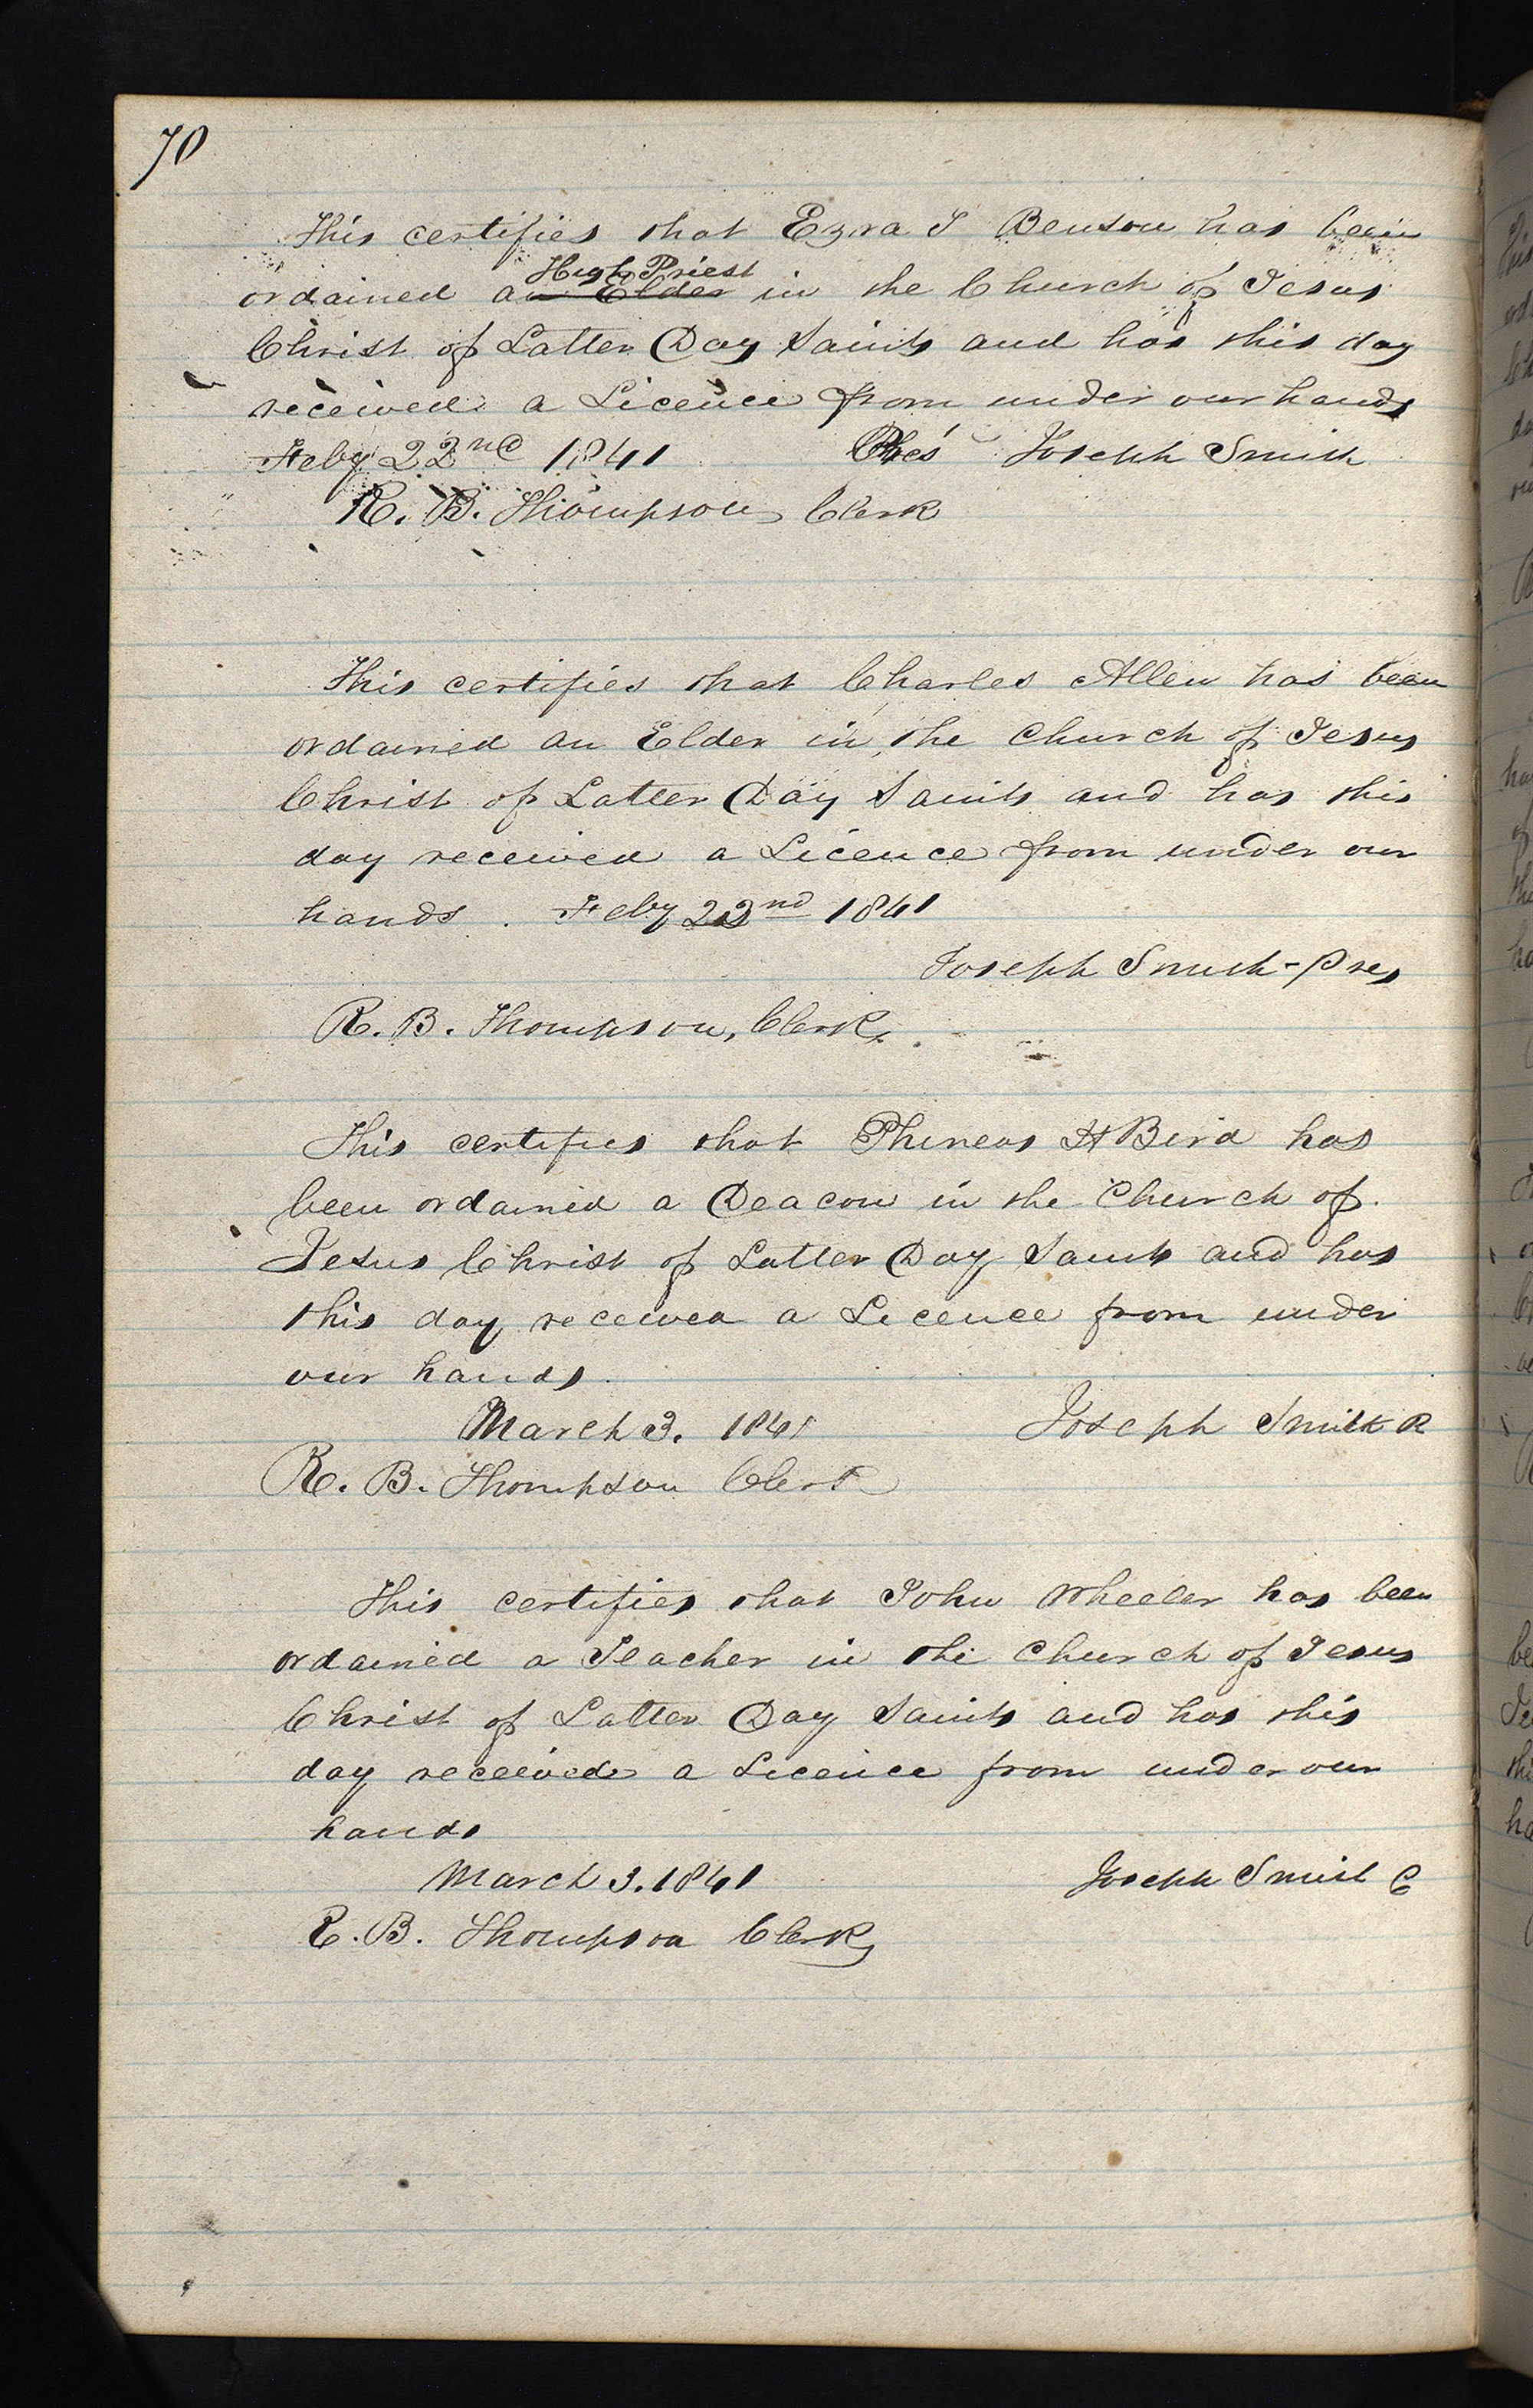 70
This certifies that Ezra T Benson has been
High Priest
ordained an Elder in the Church of Jesus
Christ of Latter Day Saints and has this day
received a Licence from under our hands
Feby 22nd 1841 Pres Joseph Smith
R. B. Thompson Clerk
This certifies that Charles Allen has been
ordained an Elder in the Church of Jesus
Christ of Latter Day Saints and has this
day received a Licence from under our
hands. Feby 22nd 1841
Joseph Smith - Pres
R. B. Thompson, Clerk.
This certifies that Phineas H Bird has
been ordained a Deacon in the Church of
Jesus Christ of Latter Day Saints and has
this day received a Licence from under
our hands.
March 3. 1841 Joseph Smith
R. B. Thompson Clerk
This certifies that John Wheeler has been
ordained a Teacher in the Church of Jesus
Christ of Latter Day Saints and has this
day received a Licence from under our
hands
March 3. 1841 Joseph Smith
R. B. Thompson Clerk